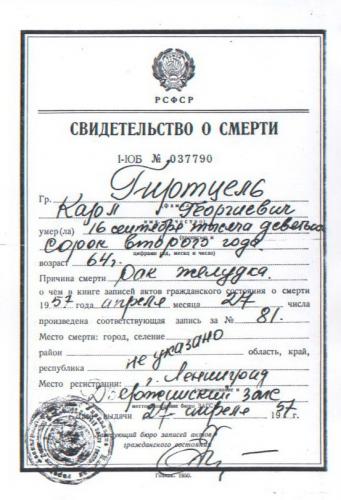 РСФСР
СВИДЕТЕЛЬСТВО О СМЕРТИ
I-ЮБ № 037790
Гр. Гиртцель
Карл Георгиевич
умер(ла) 16 сентября тысяча девятьсот
сорок второго года
цифрами год, месяц и число
возраст 64 г.
Причина смерти рак желудка.
о чем в книге записей актов гражданского состояния о смерти
1957 года апреля месяца 27 числа
произведена соответствующая запись за № 81.
Место смерти: город, селение
район область, край,
республика не указано
Место регистрации: г. Ленинград
Дзержинский загс
выдачи 27 апреля 1957.
бюро записей актов
гражданского состояния
Гознак. 1950.